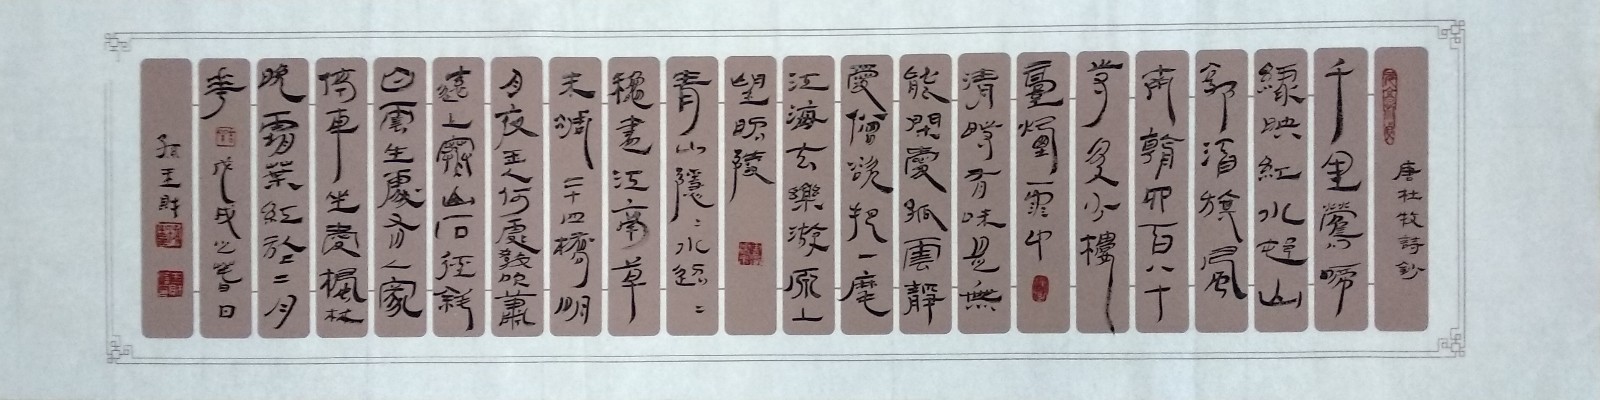 唐杜牧詩鈔
千里鶯啼
綠映紅水邨山
郭酒旗風
南朝四百八十
寺多少樓
臺煙雨中
清時有味是無
能閑愛孤雲靜
愛僧欲把一麾
江海去樂游原上
望昭陵
青山隱〻水迢〻
穐盡江南草
未凋二十四橋明
月夜玉人何處教吹簫
遠上寒山石徑斜
白雲生處有人家
停車坐愛楓林
晚霜葉紅於二月
華 戊戌之春日
孫玉財